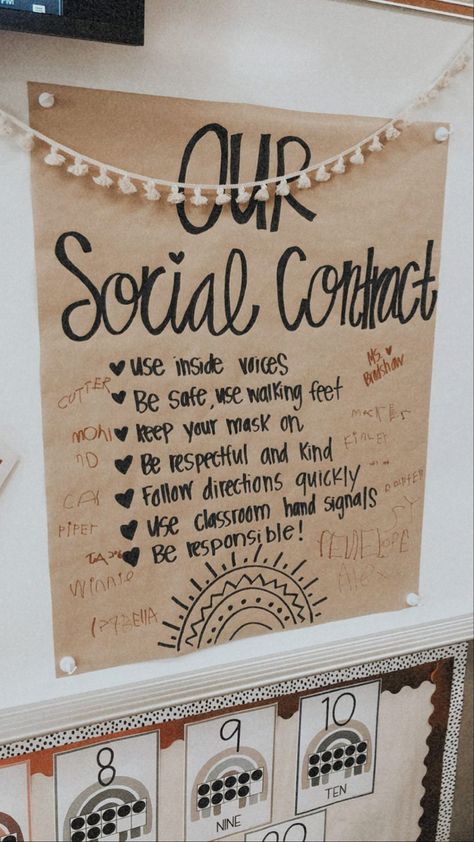 PM
OUR
Social Contract
use inside voices
Be safe, use walking feet
keep your mask on
Be respectful and kind
Follow directions quickly
use classroom hand signals
Be responsible!
Ms. Bradshaw
CUTTER
CAI
PIPER
WINNIE
PENELOPE
8
9
NINE
10
TEN